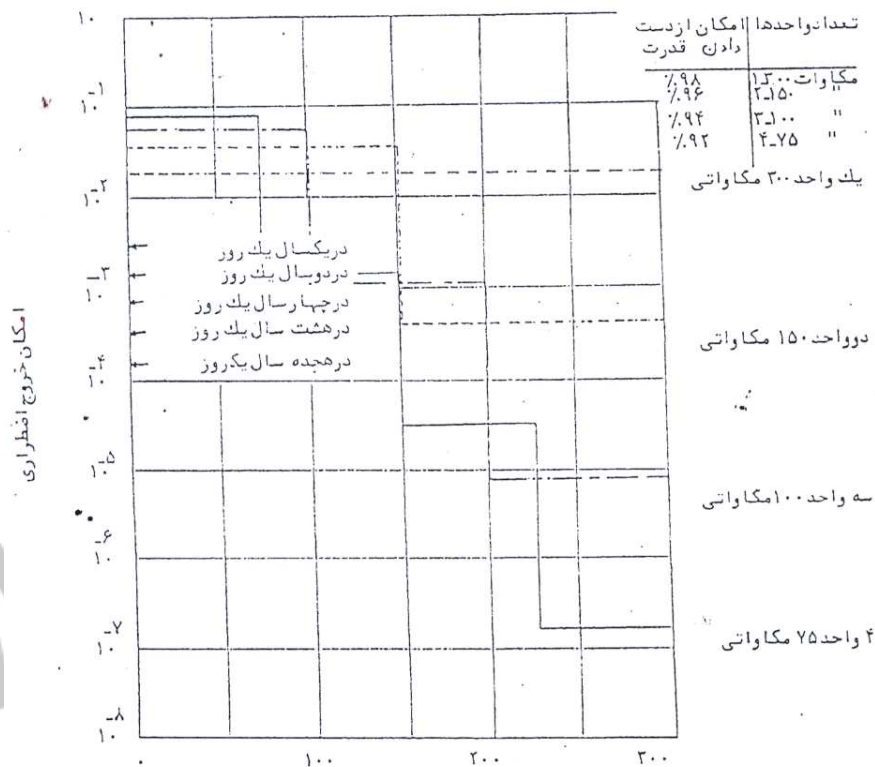 تعداد واحدها امکان ازدست دادن قدرت
۱ـ۳۰۰ مگاوات ٪۹۸
۲ـ۱۵۰ " ٪۹۶
۳ـ۱۰۰ " ٪۹۴
۴ـ۷۵ " ٪۹۲
یك واحد ۳۰۰ مکاواتی
دوواحد ۱۵۰ مکاواتی
سه واحد ۱۰۰مکاواتی
۴ واحد ۷۵ مکاواتی
دریکسال یك روز
دردوسال یك روز
درچهارسال یك روز
درهشت سال یك روز
درهجده سال یکروز
امکان خروج اضطراری
۱۰
۱۰⁻۱
۱۰⁻۲
۱۰⁻۳
۱۰⁻۴
۱۰⁻۵
۱۰⁻۶
۱۰⁻۷
۱۰⁻۸
۰ ۱۰۰ ۲۰۰ ۳۰۰